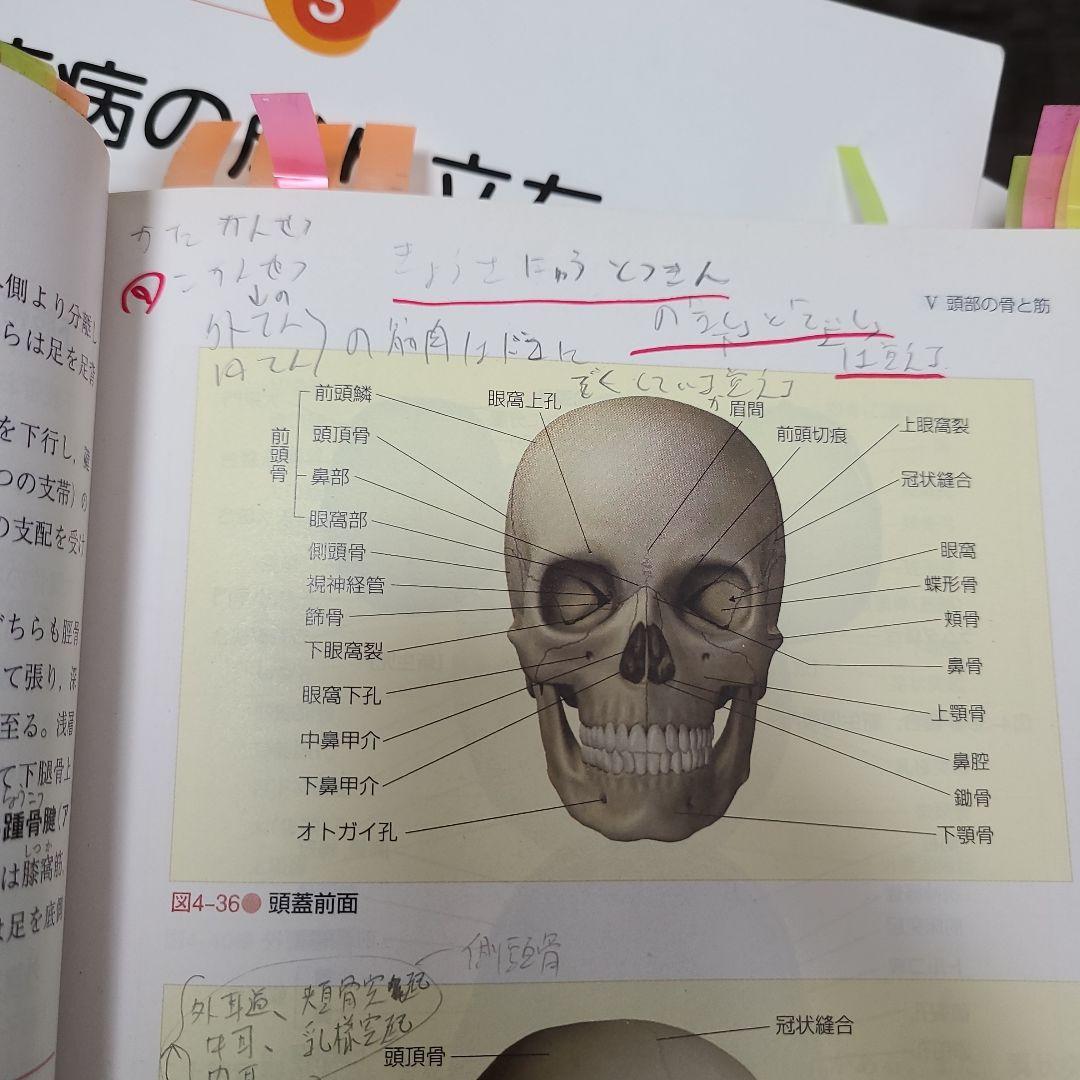 S
病の成り立ち
かた かんせつ
こかんせつ
の
きょうさにゅうとつきん
V 頭部の骨と筋
外てん
内てん
の筋肉はどこに
ぞくしている
は覚える
側より分離し
らは足を足背
を下行し,
つの支帯)の
の支配を受け
どちらも脛骨
て張り,深
至る。浅層
て下腿骨上
しょうこつ
踵骨腱(ア
しつか
は膝窩筋,
は足を底側
前頭骨
前頭鱗
頭頂骨
鼻部
眼窩部
側頭骨
視神経管
篩骨
下眼窩裂
眼窩下孔
中鼻甲介
下鼻甲介
オトガイ孔
眼窩上孔
眉間
前頭切痕
上眼窩裂
冠状縫合
眼窩
蝶形骨
頬骨
鼻骨
上顎骨
鼻腔
鋤骨
下顎骨
図4-36● 頭蓋前面
側頭骨
外耳道、
中耳、乳様突起
内耳
頭頂骨
冠状縫合